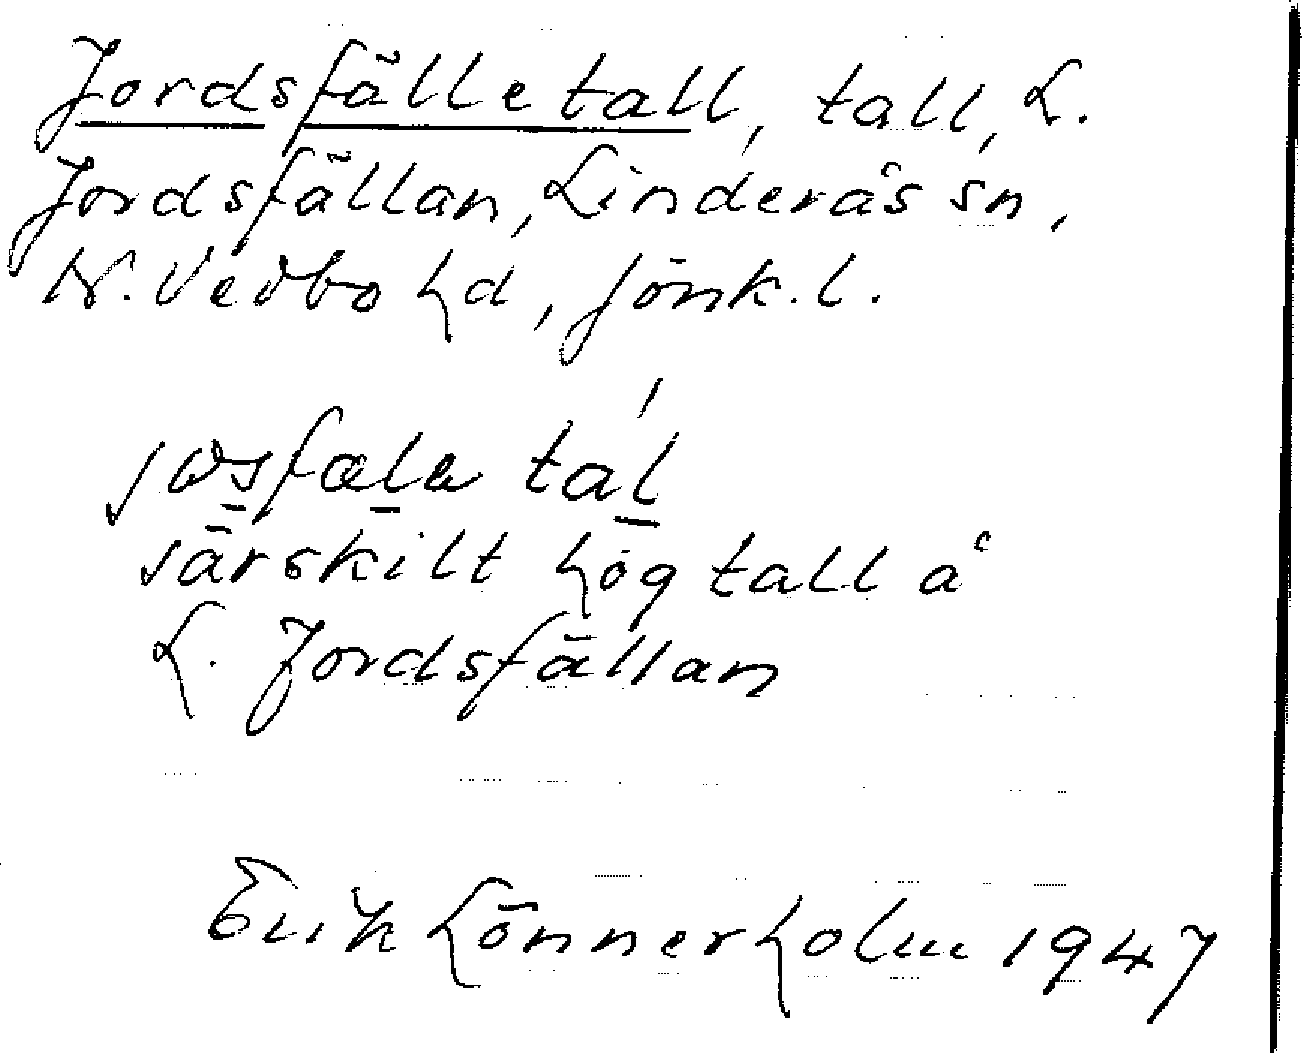 Jordsfälletall, tall, L.
Jordsfällan, Linderås sn,
N. Vedbo hd, Jönk. l.
tal
särskilt hög tall å
L. Jordsfällan
Erik Lönnerholm 1947